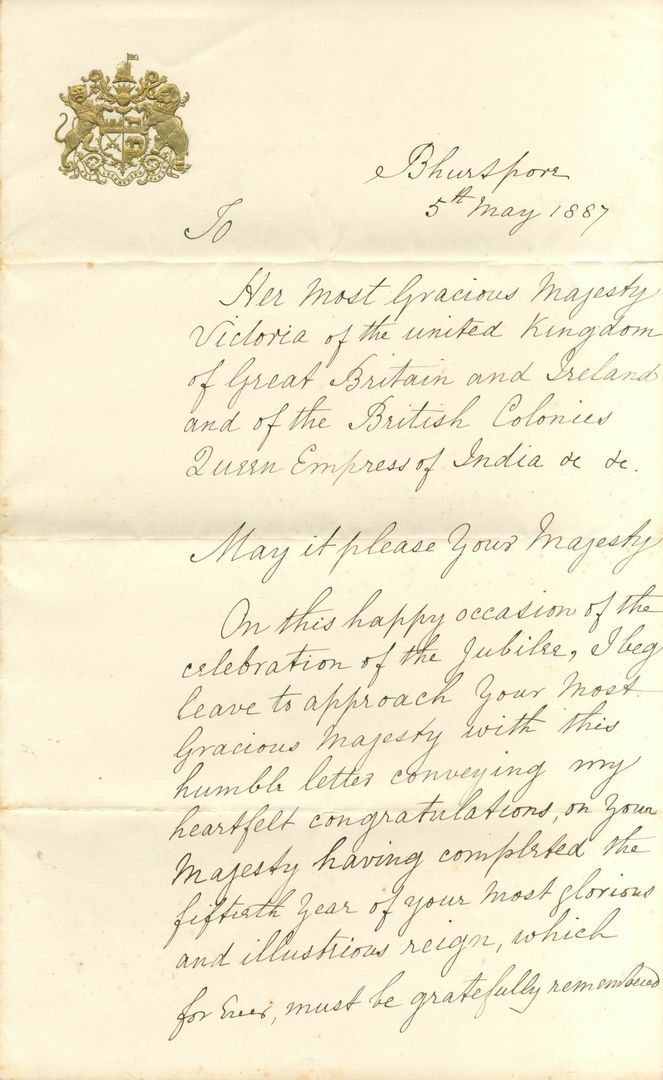 Bhurtpore
5th May 1887
To
Her Most Gracious Majesty
Victoria of the United Kingdom
of Great Britain and Ireland
and of the British Colonies
Queen Empress of India &c &c.
May it please Your Majesty
On this happy occasion of the
celebration of the Jubilee, I beg
leave to approach Your Most
Gracious Majesty with this
humble letter conveying my
heartfelt congratulations, on Your
Majesty having completed the
fiftieth Year of your most glorious
and illustrious reign, which
for Ever, must be gratefully remembered